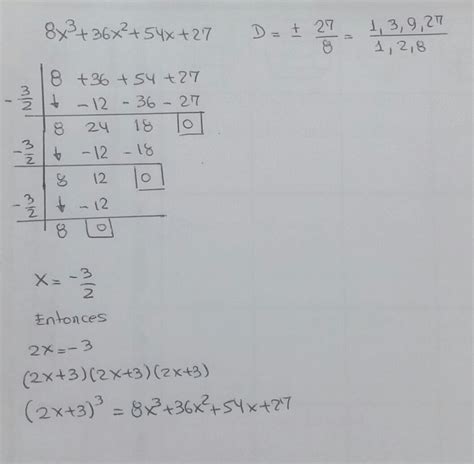 8x³+36x²+54x+27   D = ± 27/8 = 1,3,9,27/1,2,8
8 +36 +54 +27
-3/2 ↓ -12 -36 -27
8 24 18 0
-3/2 ↓ -12 -18
8 12 0
-3/2 ↓ -12
8 0
x = -3/2
Entonces
2x=-3
(2x+3)(2x+3)(2x+3)
(2x+3)³ = 8x³+36x²+54x+27